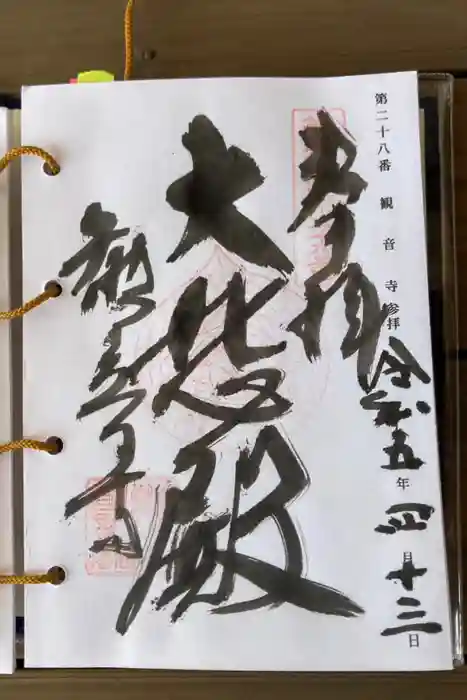 第二十八番 観音寺参拝 令和五年四月十三日
奉拝
大悲殿
観音寺